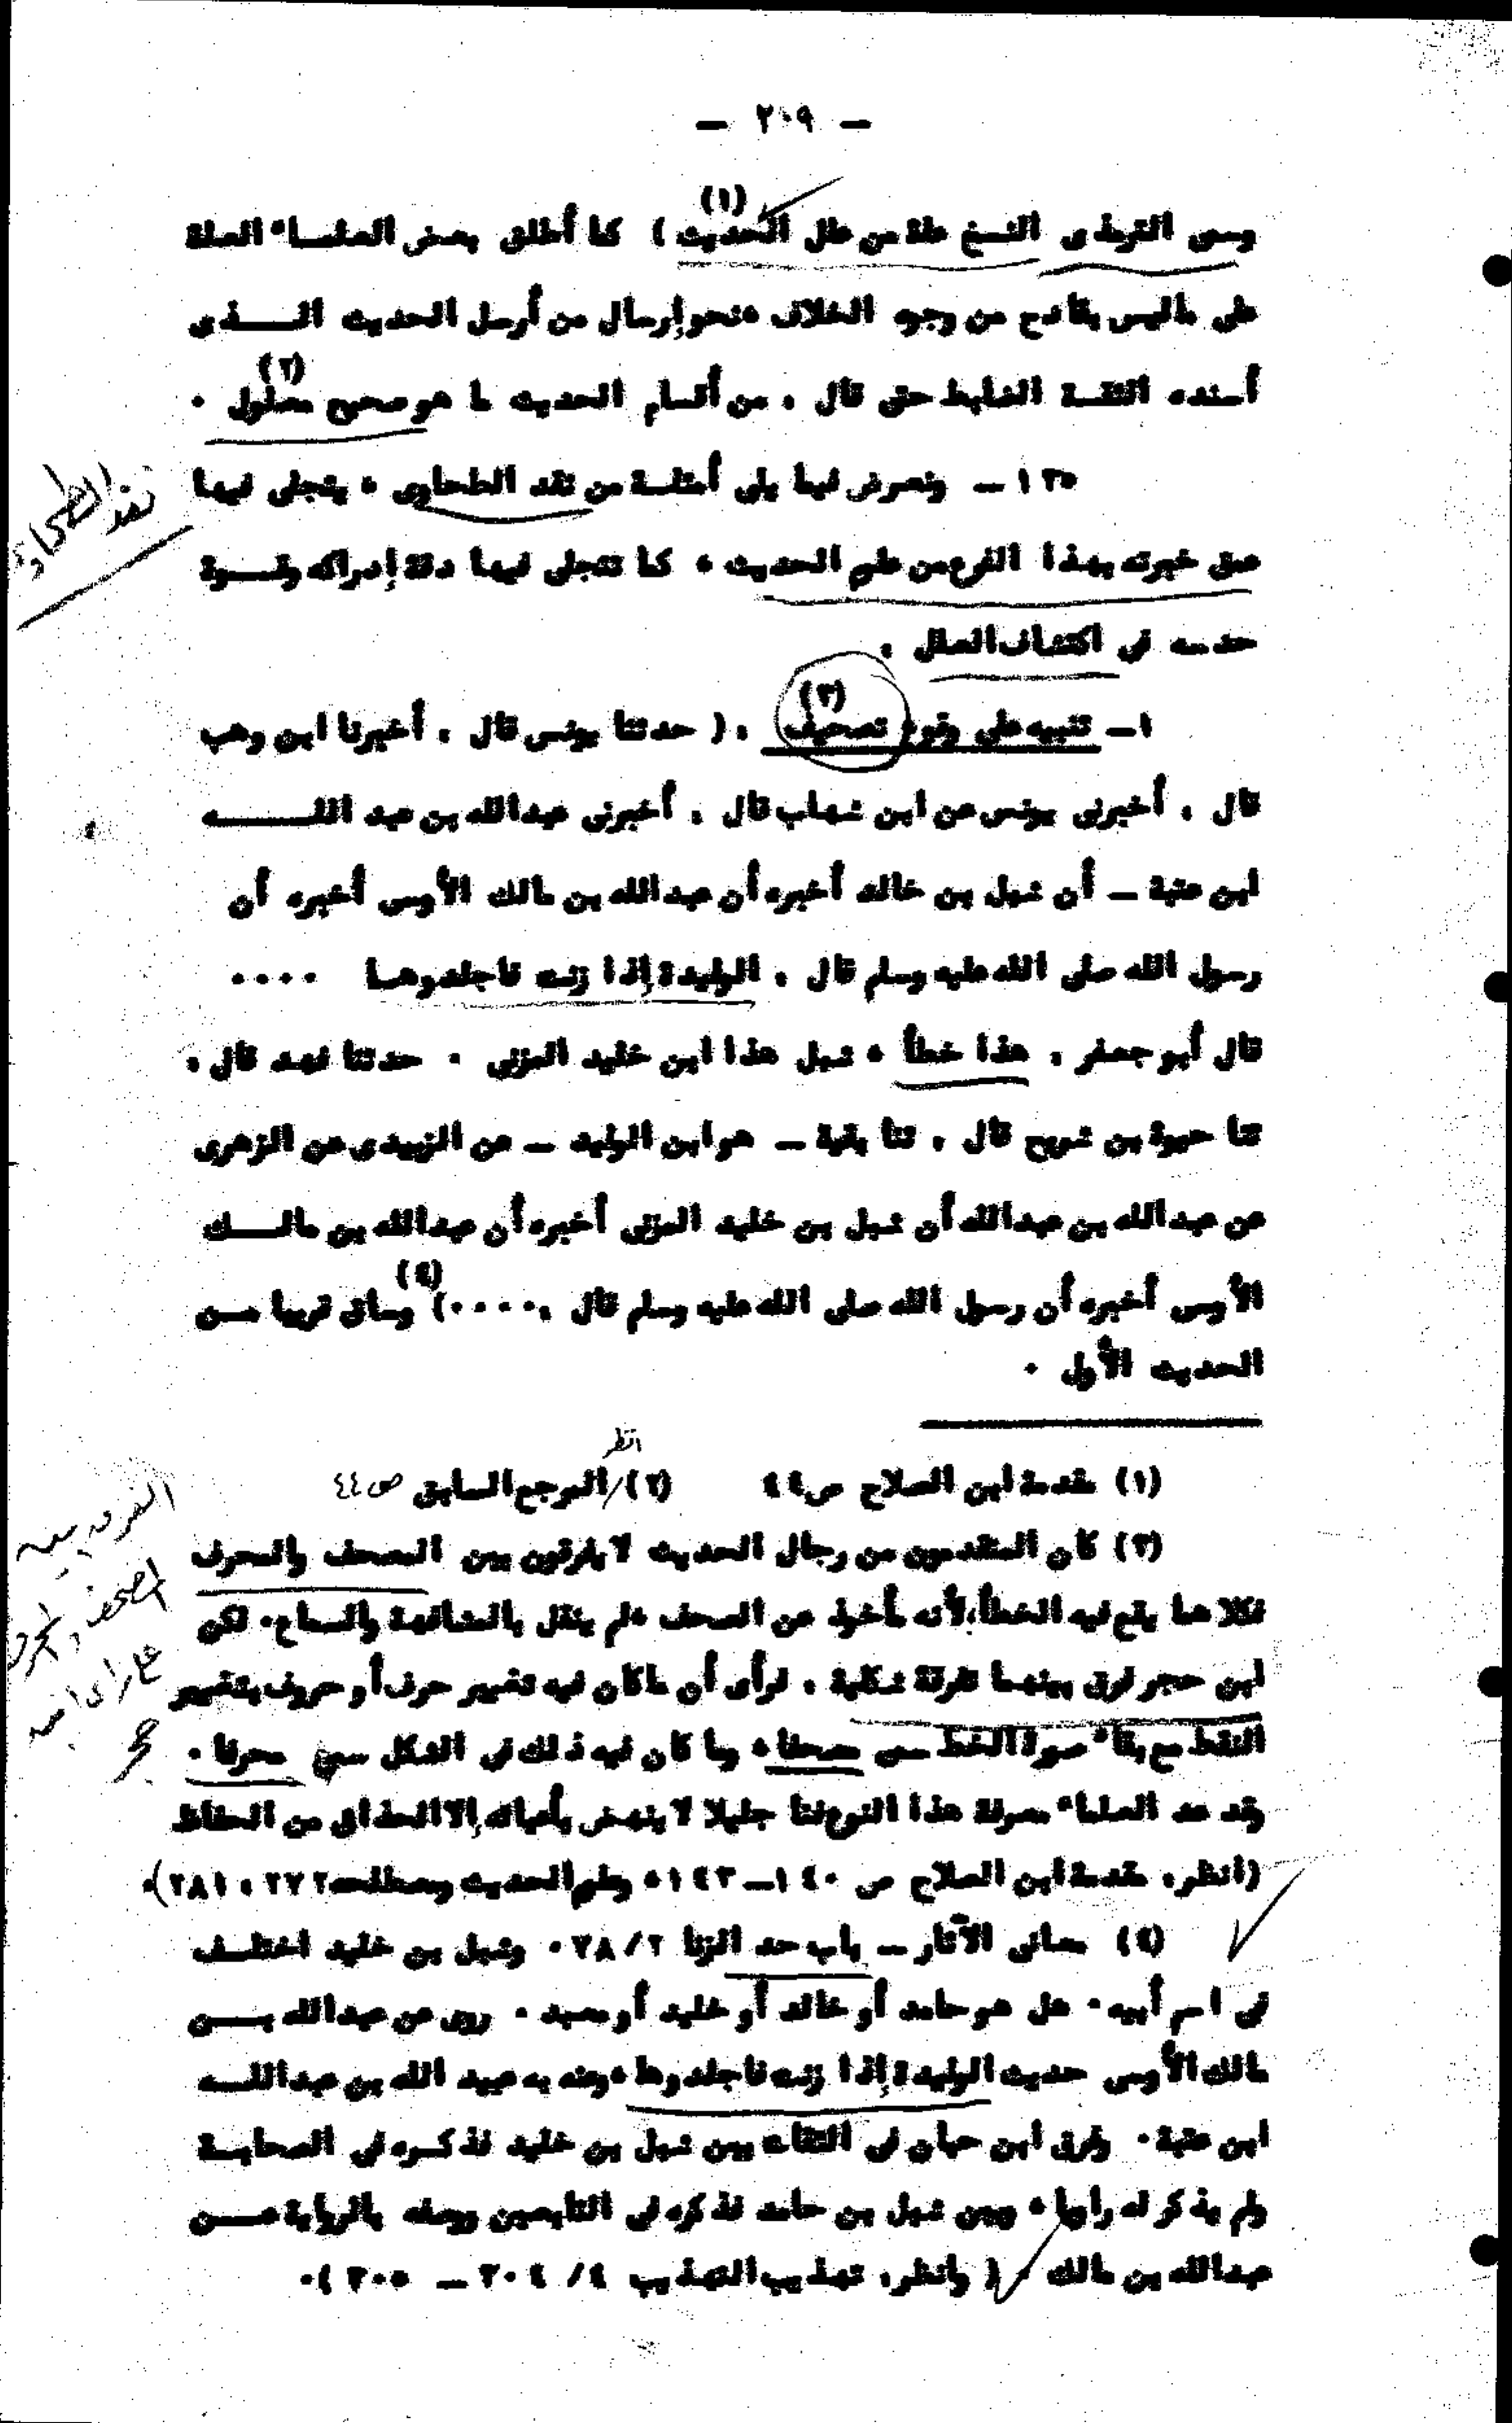 — ٢٠٩ —
وسمى الترمذى النسخ علة من علل الحديث (١) ) كما أطلق بعض العلماء العلة
على ماليس بقادح من وجوه الخلاف ، نحو إرسال من أرسل الحديث الـــذى
أسنده الثقة الضابط حتى قال . من أقسام الحديث ما هو صحيح معلول (٢) .
١٢٥ — ونعرض فيما يلى أمثلة من نقد الطحاوى ، يتجلى فيها
نقد الطحاوي
عمق خبرته بهذا الفرع من علوم الحديث ، كما تتجلى فيها دقة إدراكه وقــوة
حدسه في اكتشاف العلل .
١— تنبيه على وقوع تصحيف (٣) . ( حدثنا يونس قال . أخبرنا ابن وهب
قال . أخبرنى يونس عن ابن شهاب قال . أخبرنى عبدالله بن عبد اللــــه
ابن عتبة — أن شبل بن خالد أخبره أن عبدالله بن مالك الأوسى أخبره أن
رسول الله صلى الله عليه وسلم قال . الوليدة إذا زنت فاجلدوهــا ....
قال أبو جعفر . هذا خطأ ، شبل هذا ابن خليد المزنى . حدثنا فهد قال .
ثنا حيوة بن شريح قال . ثنا بقية — هو ابن الوليد — عن الزبيدى عن الزهرى
عن عبدالله بن عبدالله أن شبل بن خليد المزنى أخبره أن عبدالله بن مالــك
الأوسى أخبره أن رسول الله صلى الله عليه وسلم قال .....) (٤) وساق قريبا مــن
الحديث الأول .
(١) مقدمة ابن الصلاح ص٤٤ (٢) / انظر المرجع السابق ص ٤٤
(٣) كان المتقدمون من رجال الحديث لا يفرقون بين المصحف والمحرف
الفرق بين
المصحف والمحرف
فكلاهما يقع فيه الخطأ، لأنه مأخوذ عن الصحف ولم ينقل بالمشافهة والسماع. لكن
ابن حجر فرق بينهما تفرقة شكلية . فرأى أن ماكان فيه تغيير حرف أو حروف بتغيير
على رأى ابن
حجر
النقط مع بقاء صورة الخط سمى مصحفا ، وما كان فيه ذلك في الشكل سمى محرفا .
وقد عد العلماء معرفة هذا النوع فنا جليلا لا ينهض بأعبائه إلا الحذاق من الحفاظ
(انظر. مقدمة ابن الصلاح ص ١٤٠—١٤٣ ، وعلوم الحديث ومصطلحه ٢٧٢ ، ٢٨١).
(٤) معانى الآثار — باب حد الزنا ٧٨/٢ . وشبل بن خليد اختلــف
فى اسم أبيه . هل هو حامد أو خالد أو خليد أو معبد . روى عن عبدالله بـــن
مالك الأوسى حديث الوليدة إذا زنت فاجلدوها ، وعنه به عبيد الله بن عبداللــه
ابن عتبة . وفرق ابن حبان فى الثقات بين شبل بن خليد فذكــره فى الصحابــة
ولم يذكر له راويا ، وبين شبل بن حامد فذكره فى التابعين ووصفه بالرواية عــــن
عبدالله بن مالك ( وانظر. تهذيب التهذيب ٤/ ٣٠٤ — ٣٠٥ ).